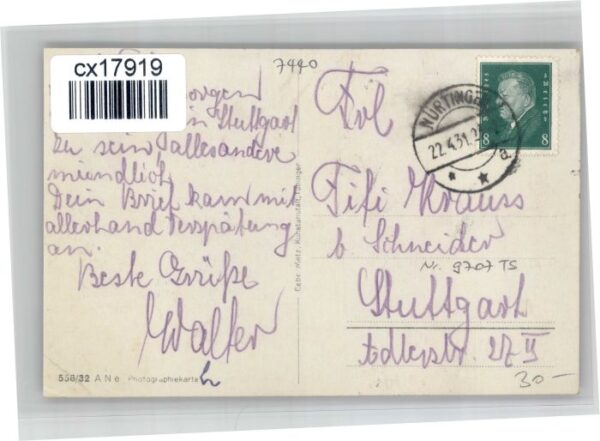 cx17919
7440
orgen
in Stuttgart
zu sein alles andere
mündlich
Dein Brief kam mit
allerhand Verspätung
an.
Beste Grüße
Walter
558/32 A N e Photographiekarte
Gebr. Metz, Kunstanstalt, Tübingen
NÜRTINGEN
22.4.31.
8 8
Frl
Fifi Krauss
b Schneider
Nr. 9707 TS
Stuttgart
Adlerstr. 27 II
30-